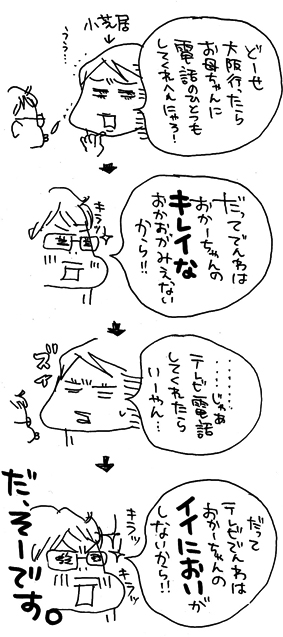 小芝居
うぅ…
どーせ
大阪行ったら
お母ちゃんに
電話のひとつも
してくれへんにゃろ!
キラッ
だってでんわは
おかーちゃんの
キレイな
おかおがみえない
から!!
ズイ
………
……じゃあ
テレビ電話
してくれたら
いーやん…
キラッ
キラッ
だって
テレビでんわは
おかーちゃんの
イイにおいが
しないから!!
だ、そーです。